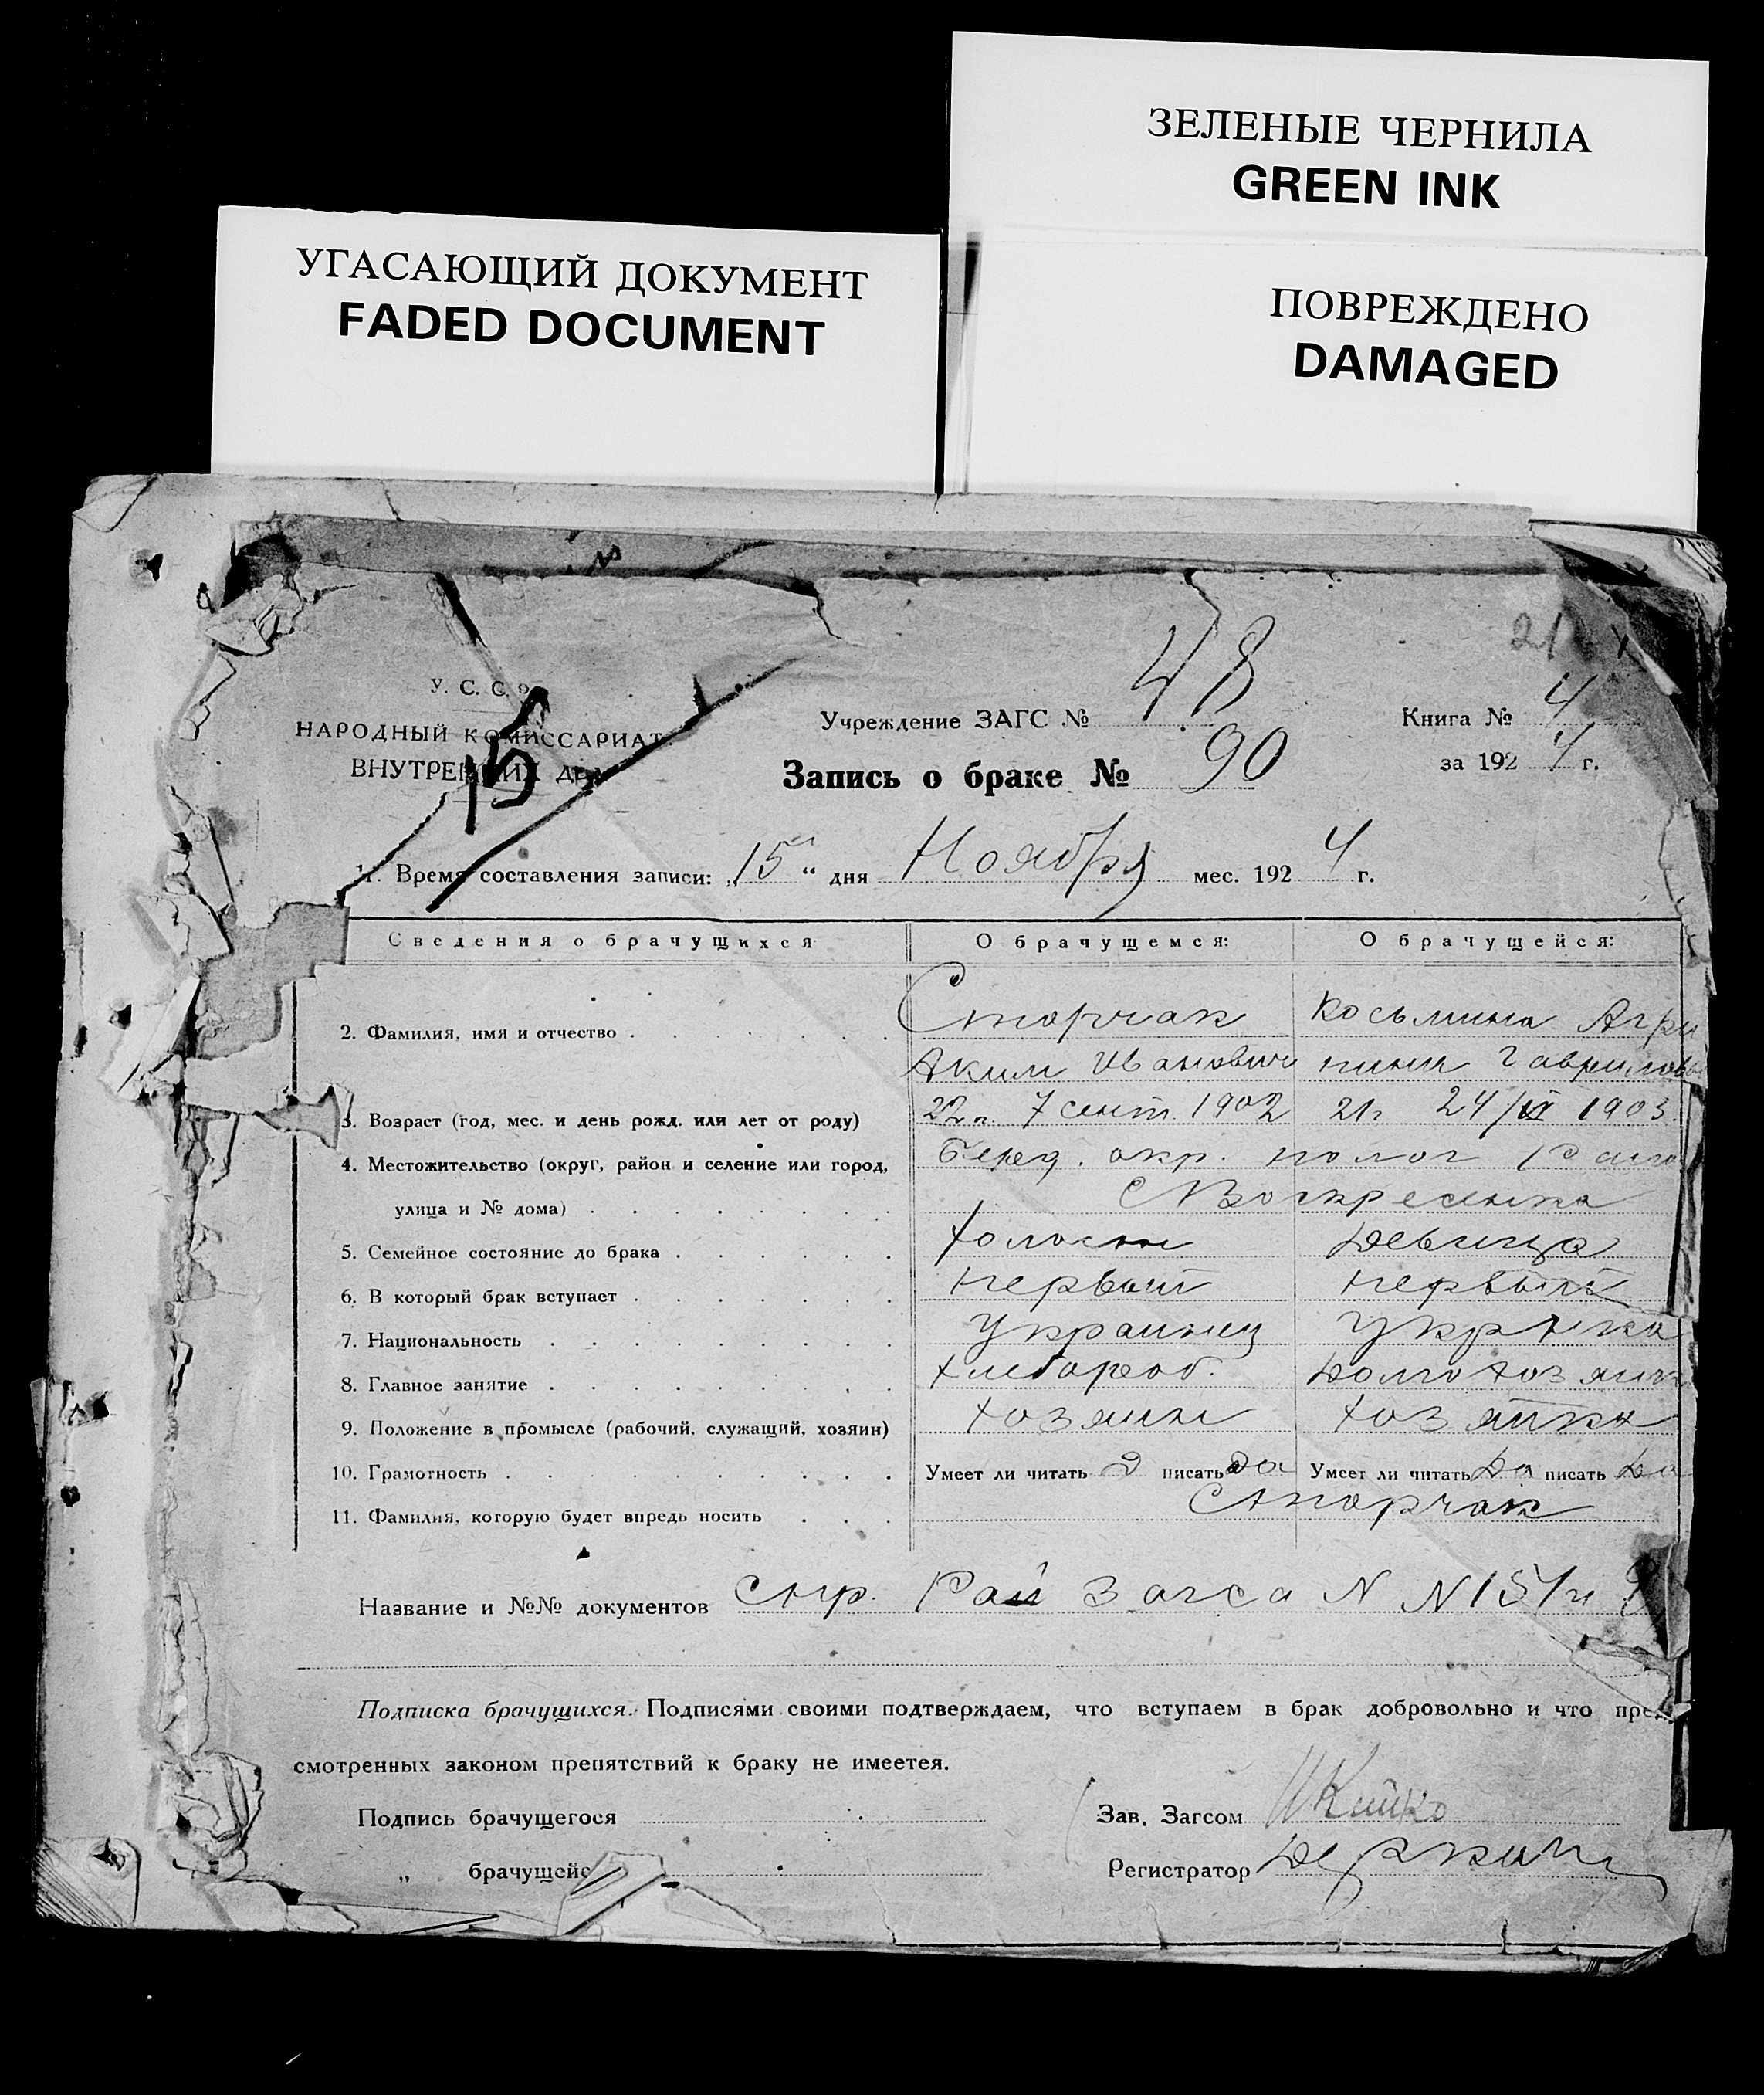 ЗЕЛЕНЫЕ ЧЕРНИЛА
GREEN INK
УГАСАЮЩИЙ ДОКУМЕНТ
FADED DOCUMENT
ПОВРЕЖДЕНО
DAMAGED
У. С. С.
НАРОДНЫЙ КОМИССАРИАТ
ВНУТРЕННИХ ДЕЛ
15
Учреждение ЗАГС № 48
Книга № 4
Запись о браке № 90
за 1924 г.
1. Время составления записи: „15“ дня Ноября мес. 1924 г.
Сведения о брачущихся О брачущемся: О брачущейся:
2. Фамилия, имя и отчество Сторчак Косьмина Агри
Аким Иванович пина Гаврилов
3. Возраст (год, мес. и день рожд. или лет от роду) 22 г. 7 сент. 1902 21 г 24/IX 1903.
4. Местожительство (округ, район и селение или город, Беред. окр. полог
улица и № дома) С Воскресенка
5. Семейное состояние до брака Холост Девица
6. В который брак вступает первый первый
7. Национальность Украинец Укр-ка
8. Главное занятие хлебороб.
9. Положение в промысле (рабочий, служащий, хозяин) хозяин хозяйка
10. Грамотность Умеет ли читать д писать да Умеет ли читать Да писать Да
11. Фамилия, которую будет впредь носить Сторчак
Название и №№ документов Спр. Рай Загса N N 151 и
Подписка брачущихся. Подписями своими подтверждаем, что вступаем в брак добровольно и что пре
смотренных законом препятствий к браку не имеетея.
Подпись брачущегося Зав. Загсом
„ брачущейс Регистратор